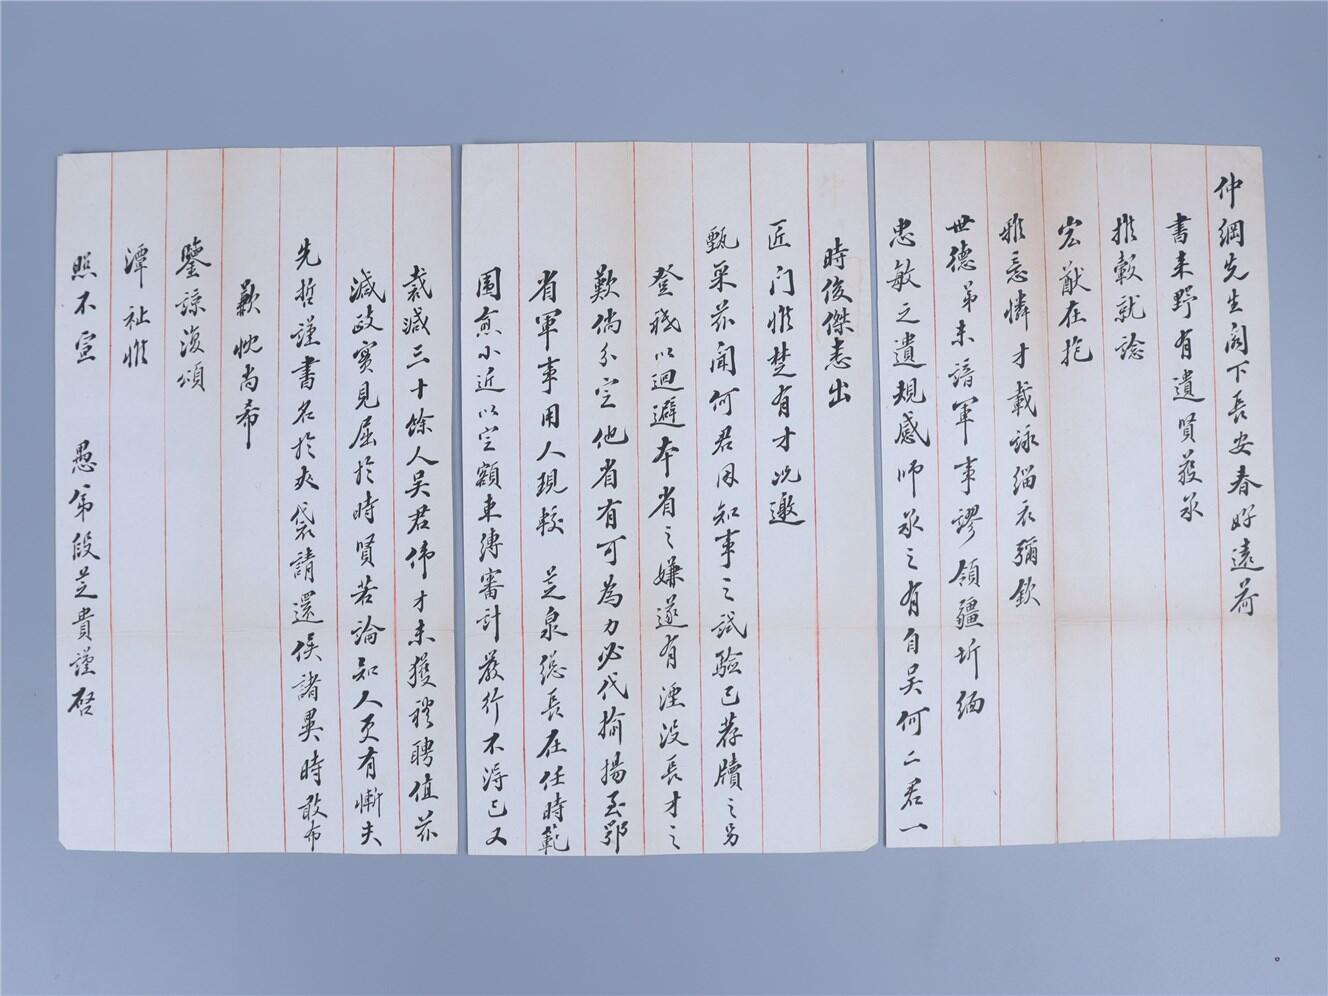 仲綱先生閣下長安春好遠荷
書來野有遺賢發承
推轂就諗
宏猷在抱
雅意憐才載詠緇衣彌欽
世德弟未諳軍事謬領疆圻緬
忠敏之遺規感師承之有自吳何二君一
時俊傑悉出
匠门惟楚有才咒邀
甄采茲聞何君因知事之試驗已荐牘之另
登秖以迴避本省之嫌遂有湮沒長才之
歎倘分定他省有可為力必代揄揚至鄂
省軍事用人現較 芝泉總長在任時範
圍煎小近以定額車薄審計嚴行不得已又
裁減三十餘人吳君偉才未獲禮聘值茲
減政實見屈於時賢若論知人更有慚夫
先哲謹書名於夾袋請還俟諸異時敢布
歉忱尚希
鑒諒復頌
潭祉惟
照不宣 愚弟段芝貴謹啓